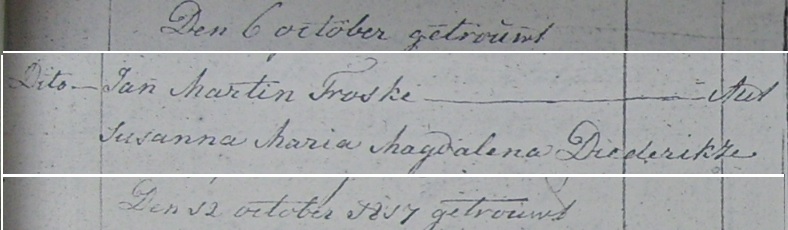 Den 6 october getrouwt
Dito — Jan Martin Troske — Aut
Susanna Maria Magdalena Diederikze
Den 12 october 1817 getrouwt